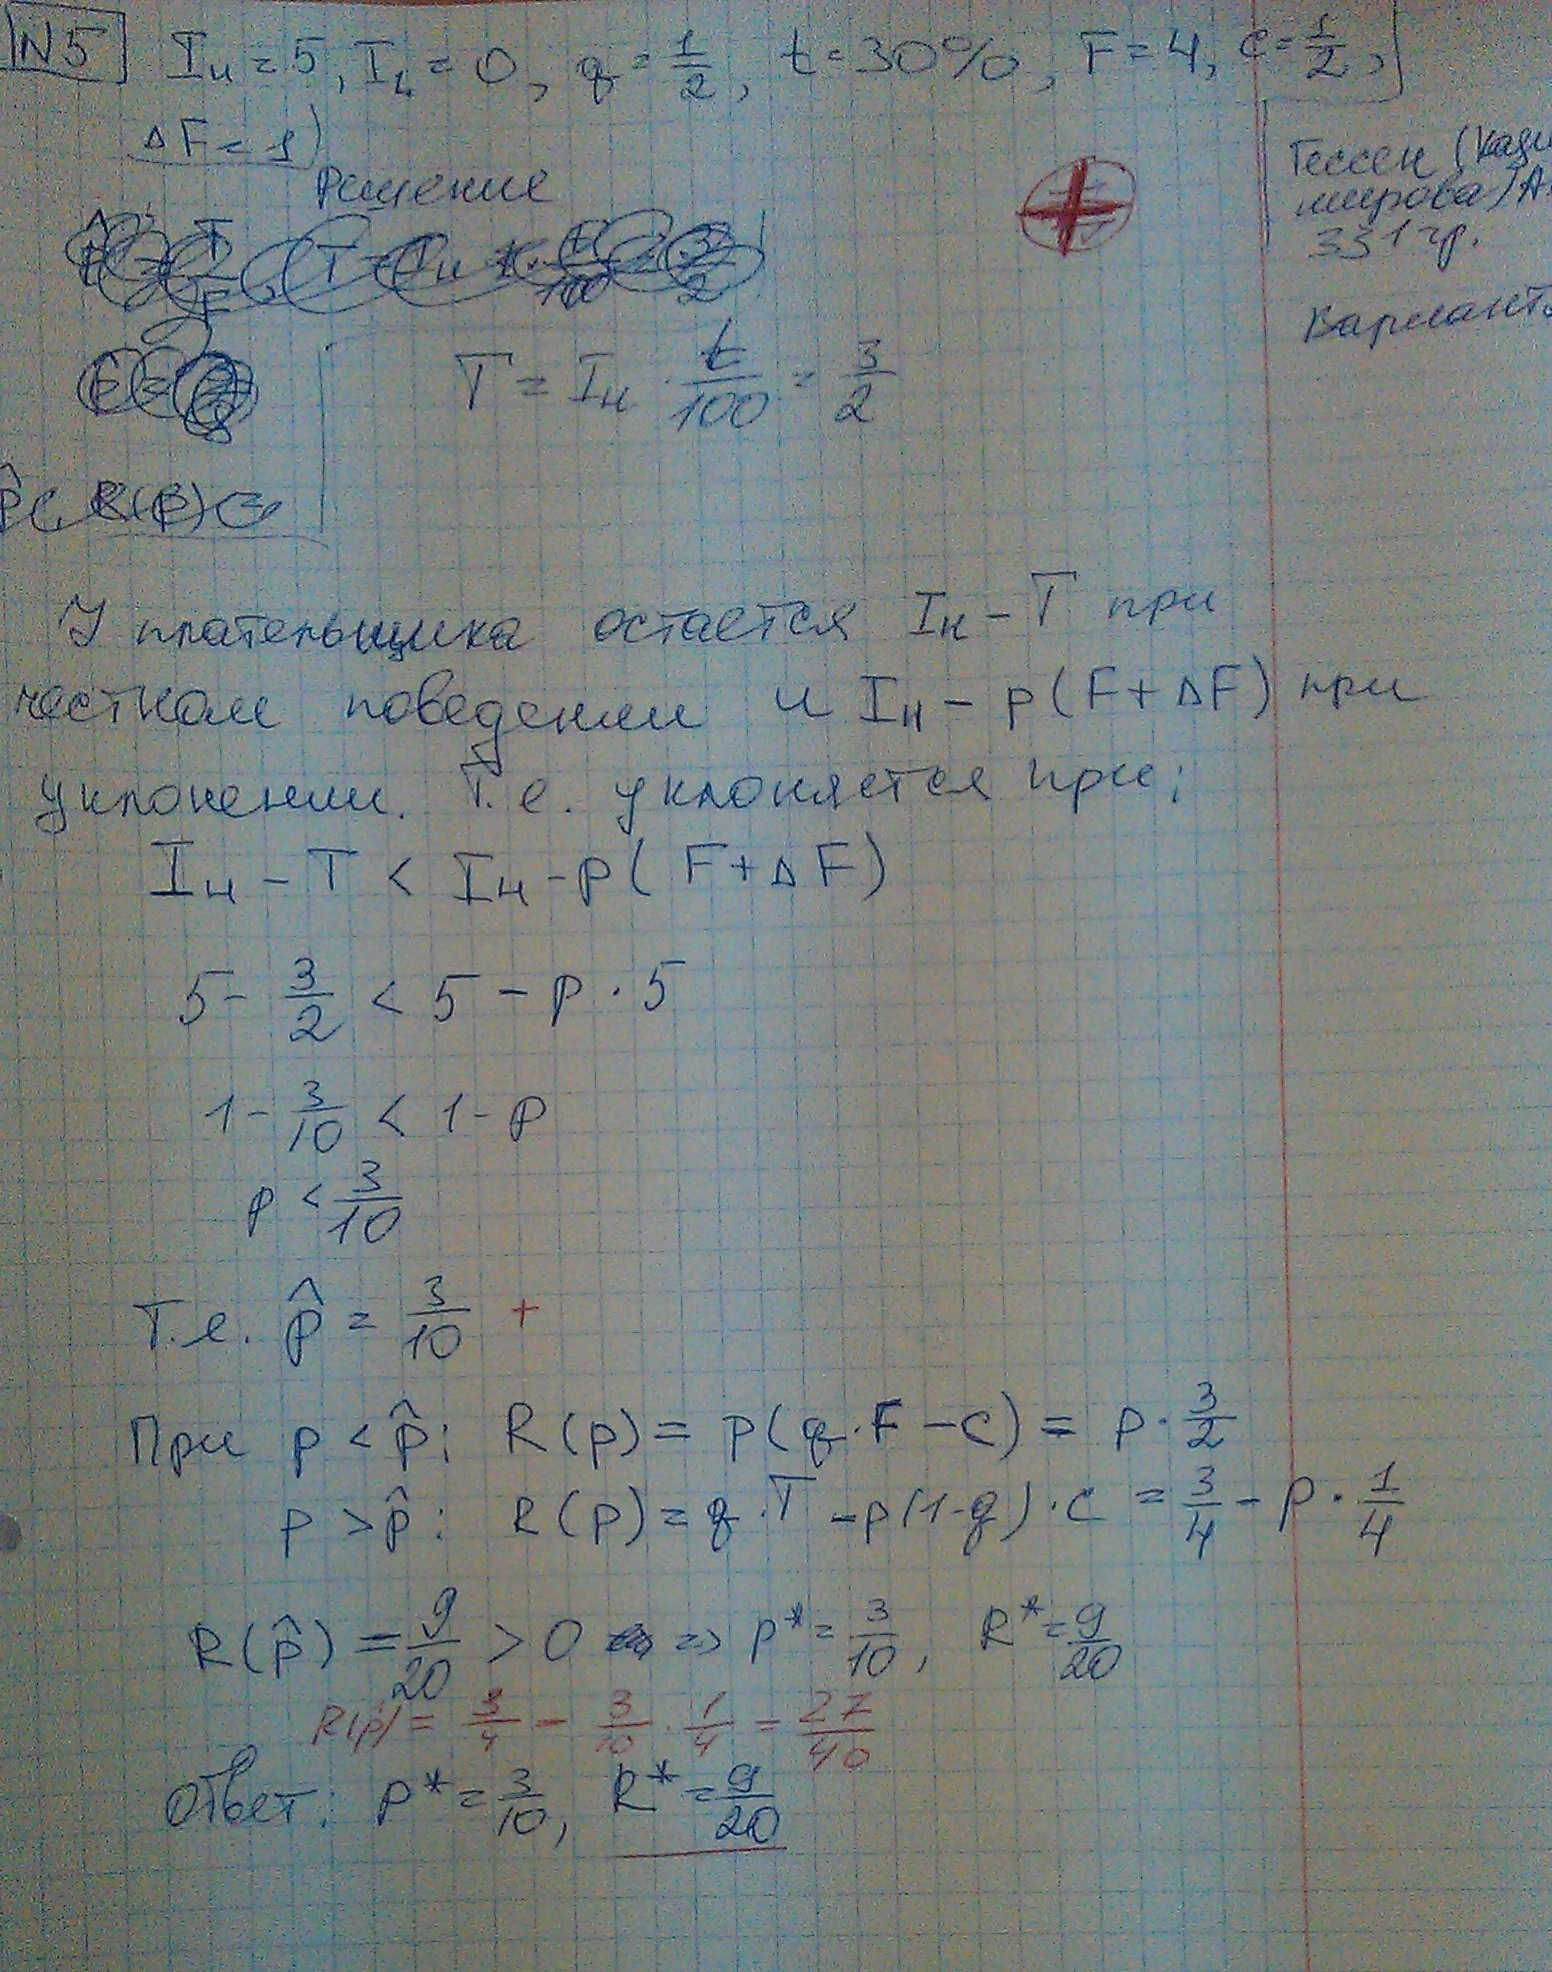 N5 I_H = 5, I_L = 0, q = 1/2, t = 30%, F = 4, c = 1/2,
ΔF = 1)
Гессен (Кази
мирова) А.
331 гр.
Вариант
Решение
T = I_H · t/100 = 3/2
P̂ R(p) =
У плательщика остается I_H - T при
честном поведении и I_H - p(F + ΔF) при
уклонении. Т.е. уклоняется при:
I_H - T < I_H - p(F + ΔF)
5 - 3/2 < 5 - p · 5
1 - 3/10 < 1 - p
p < 3/10
Т.е. p̂ = 3/10 +
При p < p̂: R(p) = p(q·F - c) = p · 3/2
p > p̂: R(p) = q·T - p(1-q)·c = 3/4 - p · 1/4
R(p̂) = 9/20 > 0 => p* = 3/10, R* = 9/20
R(p̂) = 3/4 - 3/10 · 1/4 = 27/40
Ответ: p* = 3/10, R* = 9/20